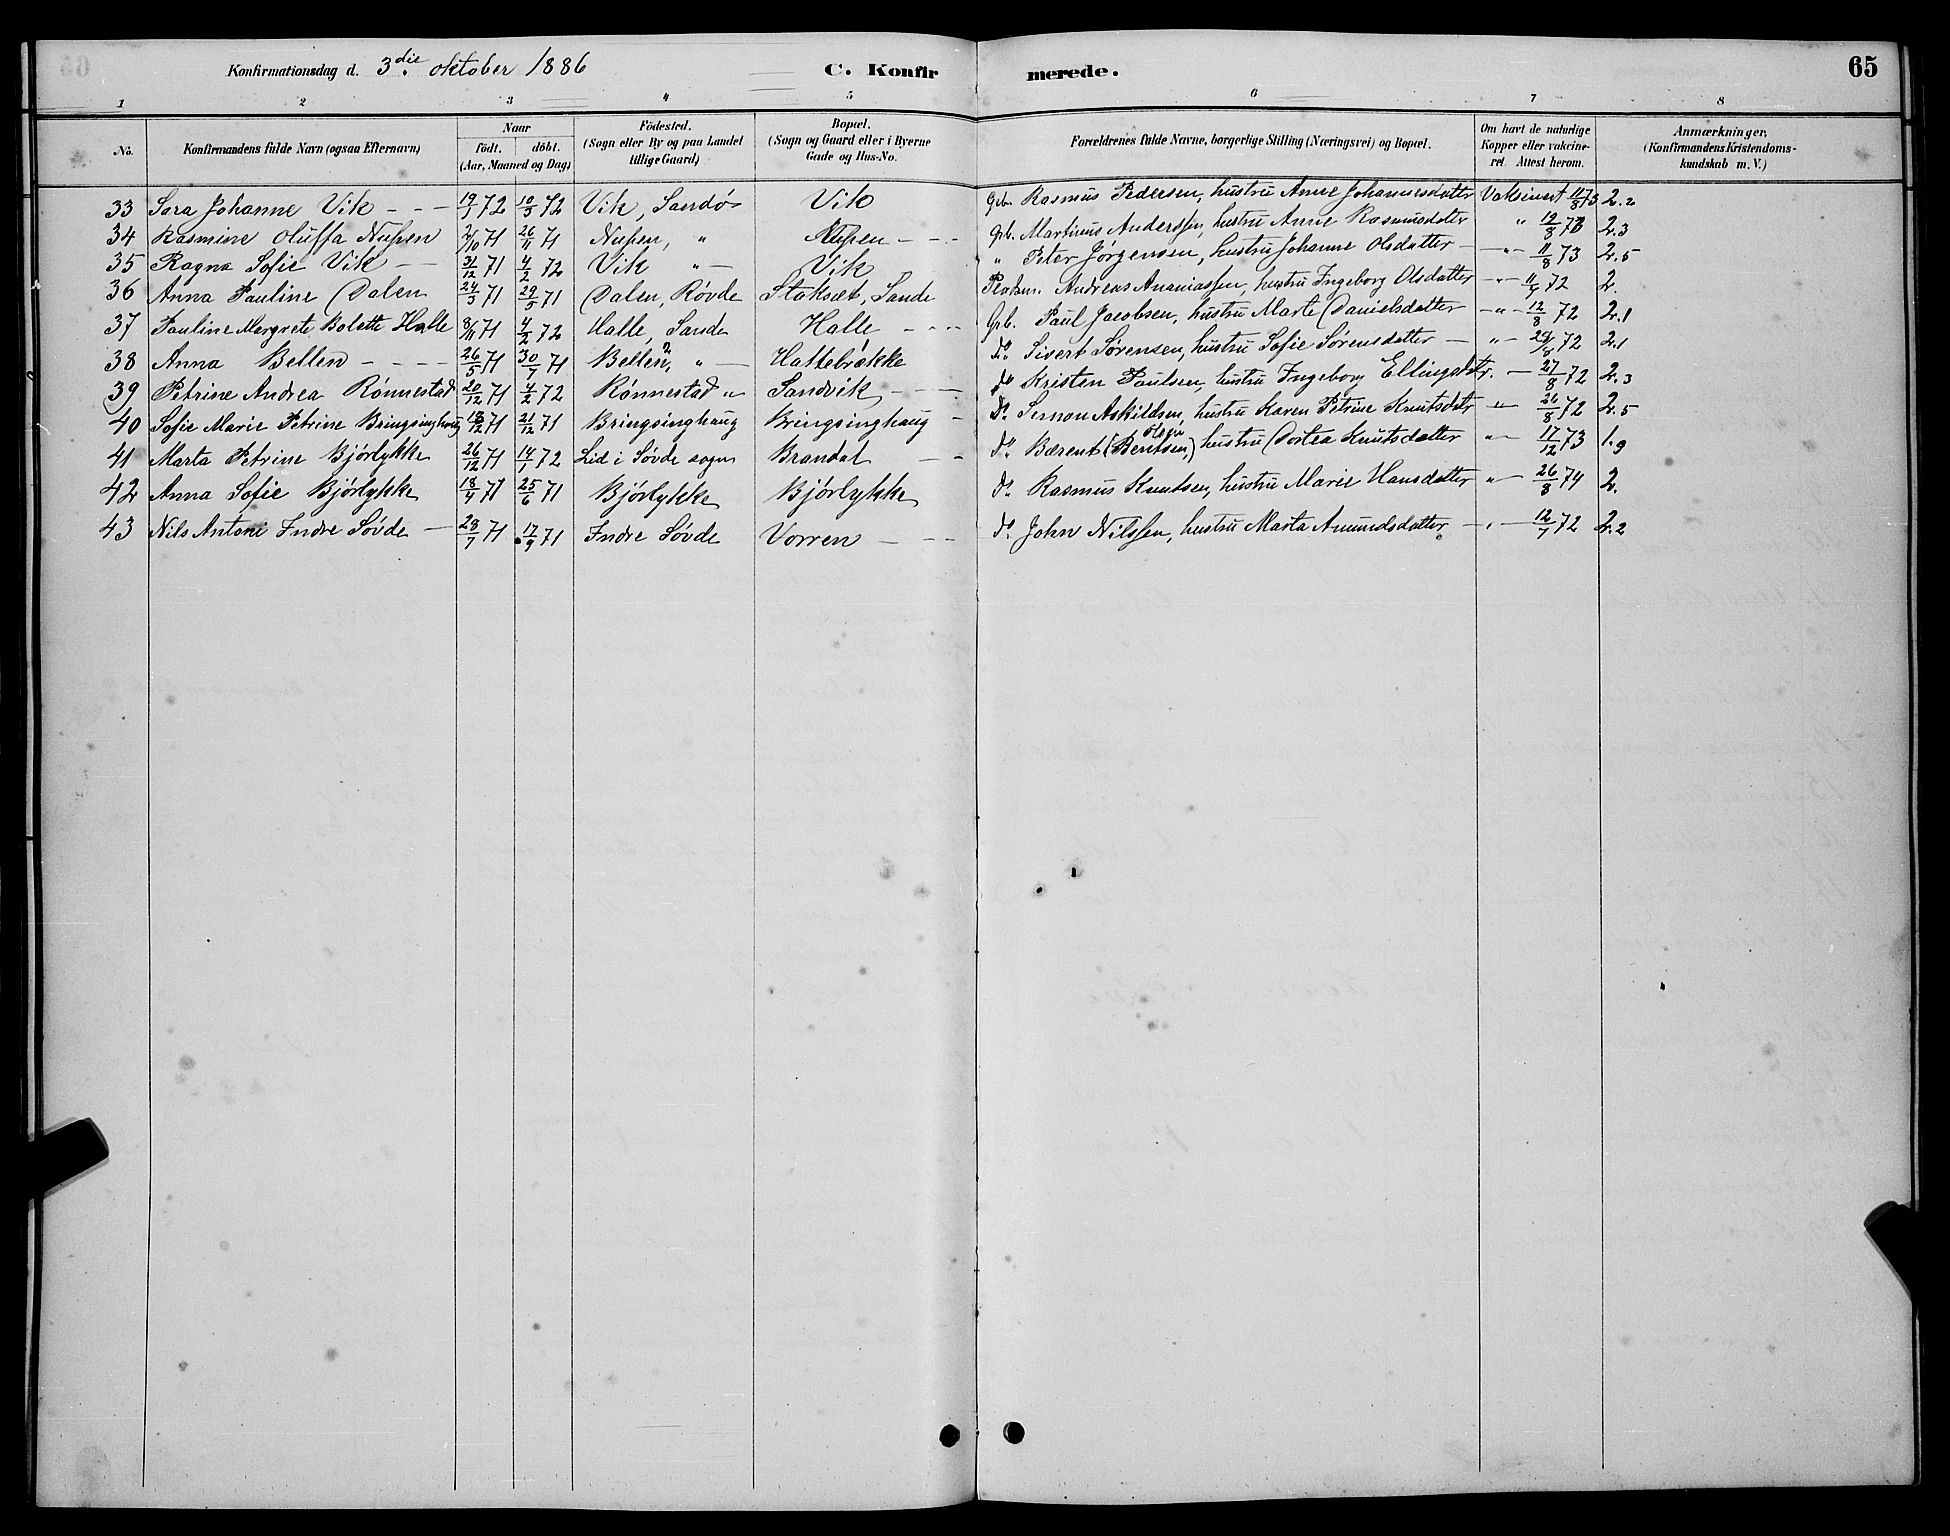 Konfirmationsdag d. 3die oktober 1886 C. Konfirmerede. 65
1 2 3 4 5 6 7 8
No. Konfirmandens fulde Navn (ogsaa Efternavn) Naar födt. döbt. (Aar, Maaned og Dag) Födested. (Sogn eller By og paa Landet tillige Gaard) Bopæl. (Sogn og Gaard eller i Byerne Gade og Hus-No. Forældrenes fulde Navne, borgerlige Stilling (Næringsvei) og Bopæl. Om havt de naturlige Kopper eller vakcineret. Attest herom. Anmærkninger. (Konfirmandens Kristendomskundskab m. V.)
33 Sara Johanne Vik - - - 19/1 72 10/3 72 Vik, Sandø Vik Grb. Rasmus Pedersen, hustru Anne Johannesdatter Vaksineret 11/8 73 2.2
34 Rasmine Oluffa Nupen 2/10 71 26/11 71 Nupen, " Nupen - - - Grb. Martinus Anderssen, hustru Anne Rasmusdatter " 12/8 73 2.3
35 Ragna Sofie Vik - - 31/12 71 4/2 72 Vik " - Vik " Peter Jørgensen, hustru Johanne Olsdatter - - " - 11/8 73 2.5
36 Anna Pauline Dalen 24/3 71 29/5 71 Dalen, Røvde Staksæt, Sande Andreas Ananiassen, hustru Ingeborg Olsdatter - " - 72 2.
37 Pauline Mergrete Bolette Halle 8/11 71 4/2 72 Halle, Sande Halle - - - Grb. Paul Jacobsen, hustru Marte Danielsdatter - " - 12/8 72 2.1
38 Anna Bellen - - - - 26/5 71 30/7 71 Bellen, " - Hattebrække do Sivert Sørensen, hustru Sofie Sørensdatter - - " - 72 2.1
39 Petrine Andrea Rönnestad 20/12 71 4/2 72 Rönnestad " Sandvik - - - do Kristen Paulsen, hustru Ingeborg Ellingsdtr. - 27/8 72 2.3
40 Sofie Marie Petrine Bringsinghaug 18/12 71 21/12 71 Bringsinghaug Bringsinghaug - do Askildsen, hustru Karen Petrine Knutsdatr " - 26/8 72 2.5
41 Marta Petrine Bjórlykke 26/12 71 14/1 72 Lid i Søvde sogn Brandal - - do Bærent (Bentsen,) hustru Dortea Knutsdatter " - 17/12 73 1.9
42 Anna Sofie Bjórlykke 18/4 71 25/6 71 Bjórlykke Bjórlykke do Rasmus Knutsen, hustru Marie Hansdatter " - 26/8 74 2.
43 Nils Antoni Indre Søvde - 28/7 71 17/9 71 Indre Søvde Vorren - - - do John Nilssen, hustru Marta Amundsdatter - " - 12/7 72 2.2